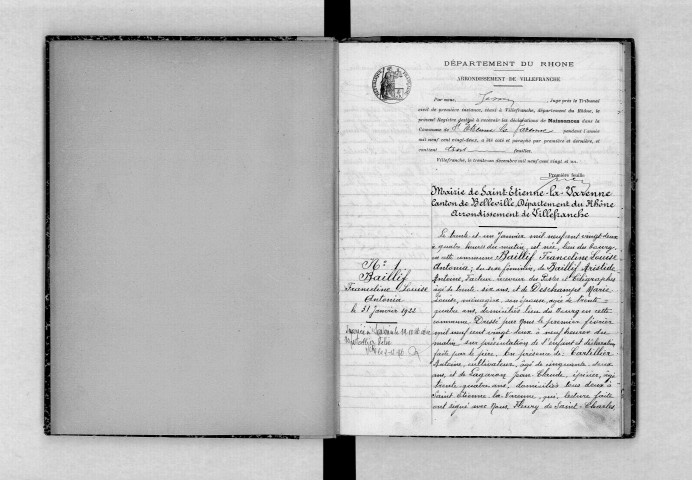 DÉPARTEMENT DU RHONE
ARRONDISSEMENT DE VILLEFRANCHE
Par nous, Juge près le Tribunal
civil de première instance, séant à Villefranche, département du Rhône, le
présent Registre destiné à recevoir les déclarations de Naissances dans la
Commune de St Etienne la Varenne pendant l'année
mil neuf cent vingt-deux, a été coté et paraphé par première et dernière, et
contient trois feuilles.
Villefranche, le trente-un décembre mil neuf cent vingt et un.
Première feuille
Mairie de Saint Etienne-la-Varenne
Canton de Belleville, Département du Rhône
Arrondissement de Villefranche
N° 1
Baillif
Franceline Louise
Antonia
le 31 Janvier 1922
Le trente et un Janvier mil neuf cent vingt deux
à quatre heures du matin, est née, lieu du bourg,
en cette commune Baillif Franceline Louise
Antonia, du sexe féminin, de Baillif Aristide
Antoine, facteur receveur des Postes et Télégraphes
âgé de trente-six ans, et de Deschamps Marie
Louise, ménagère, son épouse, âgée de trente-
quatre ans, domiciliés lieu du bourg en cette
commune. Dressé par Nous le premier février
mil neuf cent vingt deux à neuf heures du
matin, sur présentation de l'enfant et déclaration
faite par le père. En présence de
Antoine, cultivateur, âgé de cinquante-deux
ans, et de Jean Claude, épicier, âgé
trente quatre ans, domiciliés tous deux à
Saint Etienne-la-Varenne, qui, lecture faite
ont signé avec Nous, Fleury de Saint-Charles